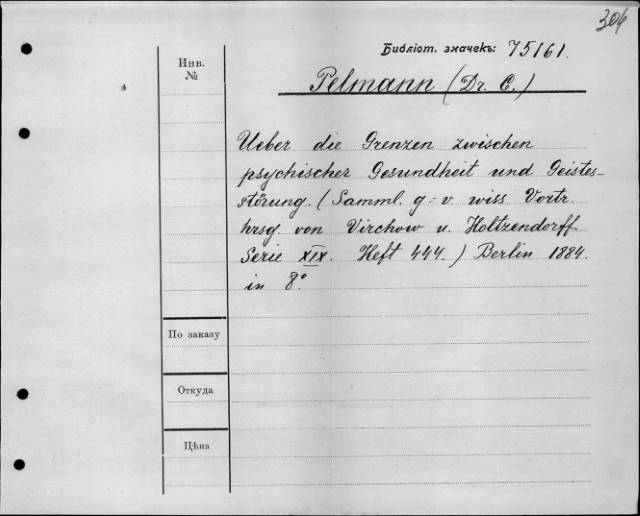 306
Библіот. значекъ: 75161.
Инв.
№
Pelmann (Dr. C.)
Ueber die Grenzen zwischen
psychischer Gesundheit und Geistes-
störung. (Samml. g. v. wiss. Vortr.
hrsg. von Virchow u. Holtzendorff
Serie XIX. Heft 444.) Berlin 1884.
in 8°.
По заказу
Откуда
Цѣна